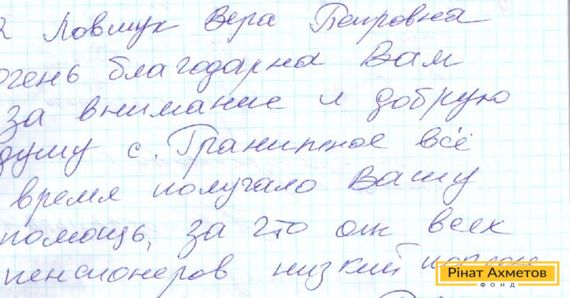 Ловмук Вера Петровна
очень благодарна Вам
за внимание и добрую
душу с. Гранитное всё
время получало Вашу
помощь, за что от всех
пенсионеров низкий
Рінат Ахметов
ФОНД